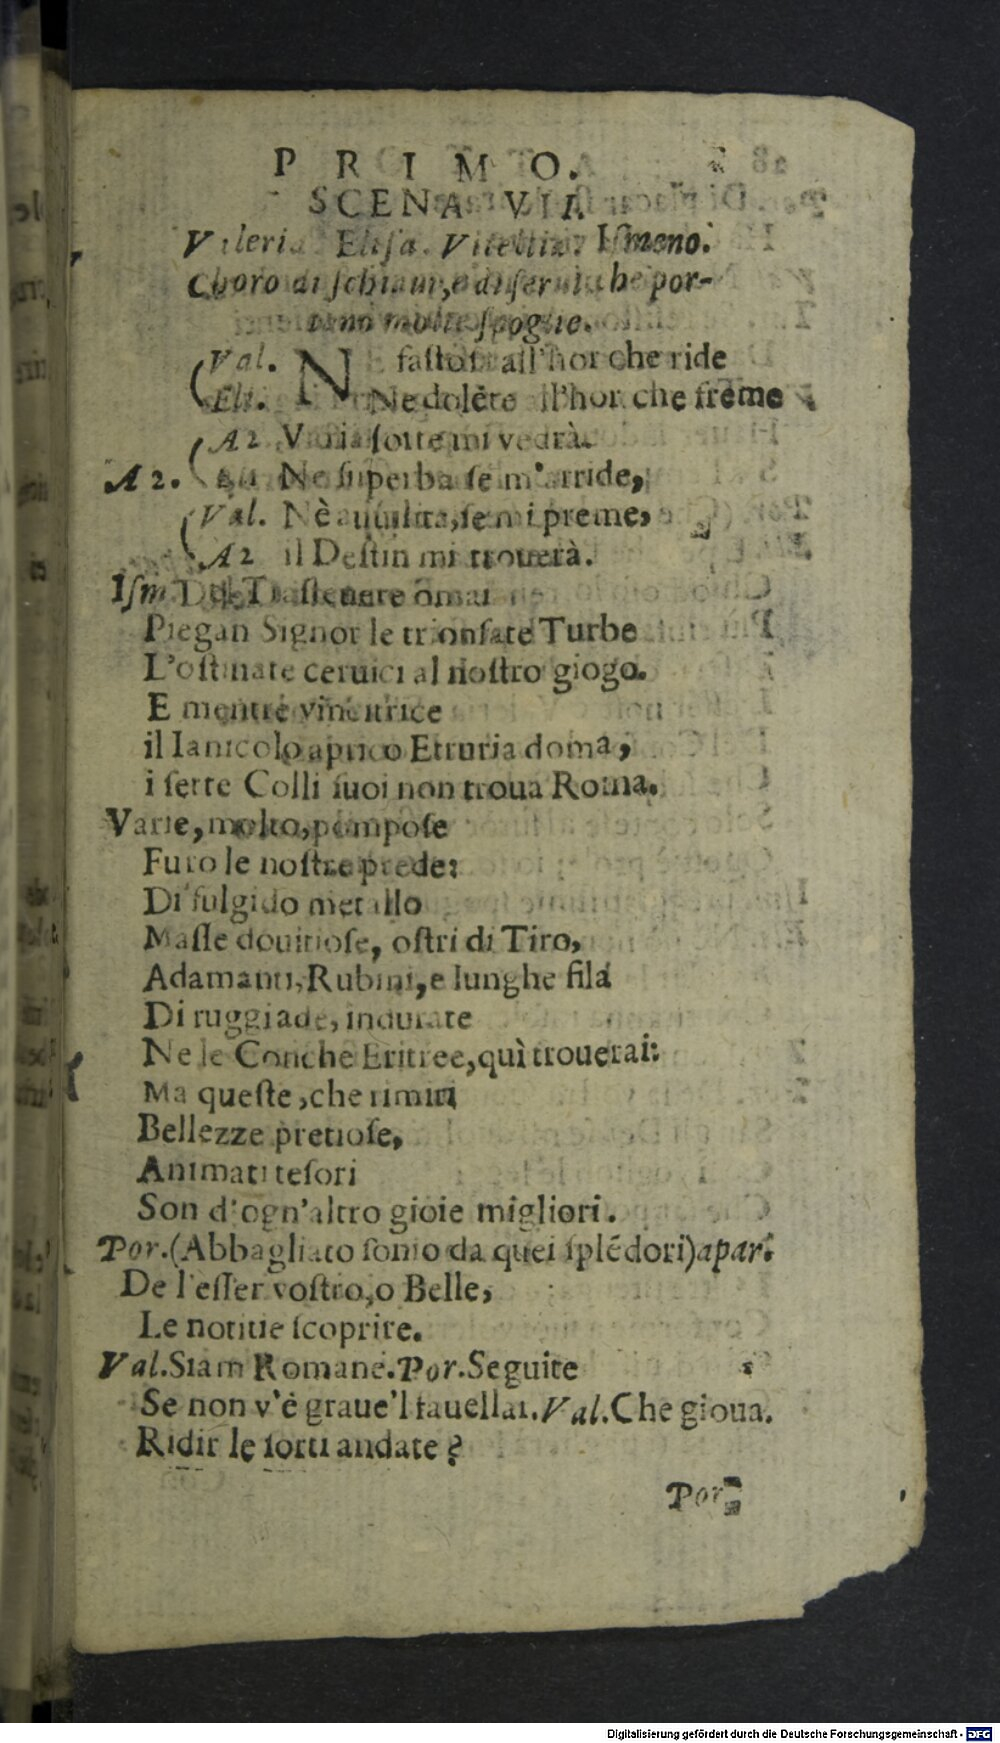 PRIMO.
SCENA VII
Valeria Elisa. Vitellia. Iſmeno.
Choro di ſchiaui, e di ſerui che por-
tano molte ſpoglie.
Val. N faſtoſa all'hor che ride
Eli. Ne dolẽte all'hor che frême
A2 Varia ſorte mi vedrà.
A 2. Eli Ne ſuperba ſe m'arride,
Val. Nè auuilita, ſe mi preme,
A2 il Deſtin mi trouerà.
Iſm omai
Piegan Signor le trionfate Turbe
L'oſtinate ceruici al noſtro giogo.
E mentre vincitrice
il Ianicolo aprico Etruria doma,
i ſette Colli ſuoi non troua Roma.
Varie, molto, pompoſe
Furo le noſtre prede:
Di fulgido metallo
Maſſe douitioſe, oſtri di Tiro,
Adamanti, Rubini, e lunghe fila
Di ruggiade, indurate
Ne le Conche Eritree, quì trouerai:
Ma queſte, che rimiri
Bellezze pretioſe,
Animati teſori
Son d'ogn'altro gioie migliori.
Por. (Abbagliato ſonio da quei ſplẽdori) apar.
De l'eſſer voſtro, o Belle,
Le notitie ſcoprire.
Val. Siam Romane. Por. Seguite
Se non v'è graue'l fauellar. Val. Che gioua.
Ridir le ſorti andate?
Por
Digitalisierung gefördert durch die Deutsche Forschungsgemeinschaft - DFG